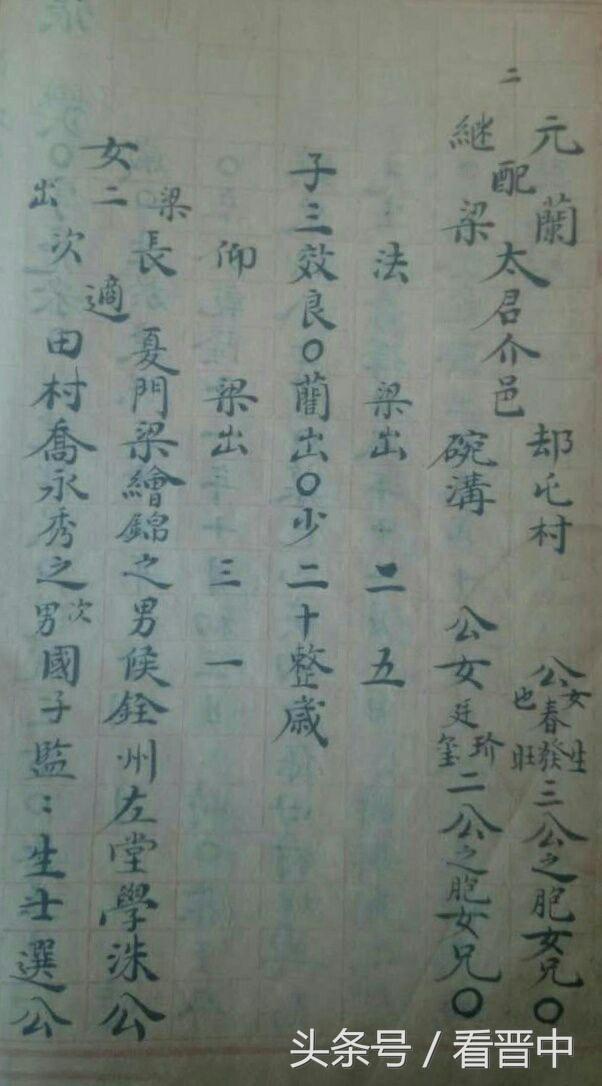 二
元 蘭 郄屯村 公女也春發生旺三公之胞女兄〇
配太君介邑
継 梁 碗溝 公女廷玠璽二公之胞女兄〇
法 梁出 二 五
子三效良〇蘭出〇少二十整歲
仰 梁出 三 一
梁 長 夏門梁繪錦之男候銓州左堂學洙公
女二 適
出 次 田村喬永秀之次男國子監：生士選公
头条号 / 看晋中